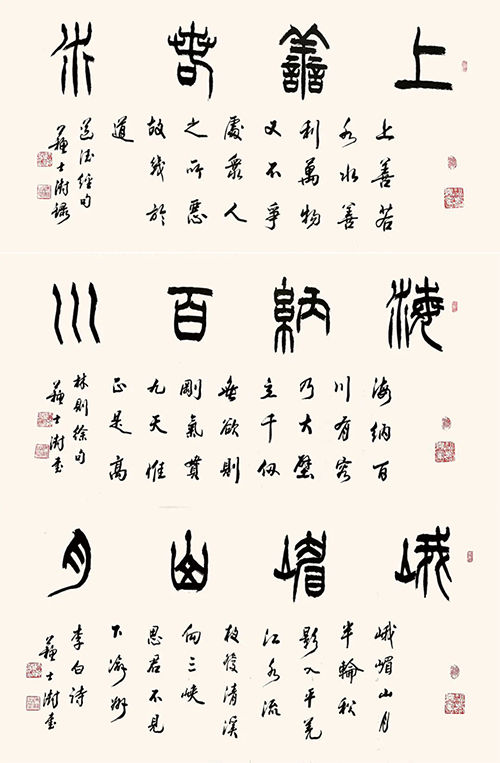 上善若水
上善若
水水善
利萬物
又不爭
處衆人
之所惡
故幾於
道
道德經句
蘇士澍錄
海納百川
海納百
川有容
乃大壁
立千仞
無欲則
剛氣貫
九天惟
正是高
林則徐句
蘇士澍書
峨嵋山月
峨嵋山月
半輪秋
影入平羌
江水流
夜發清溪
向三峽
思君不見
下渝州
李白詩
蘇士澍書